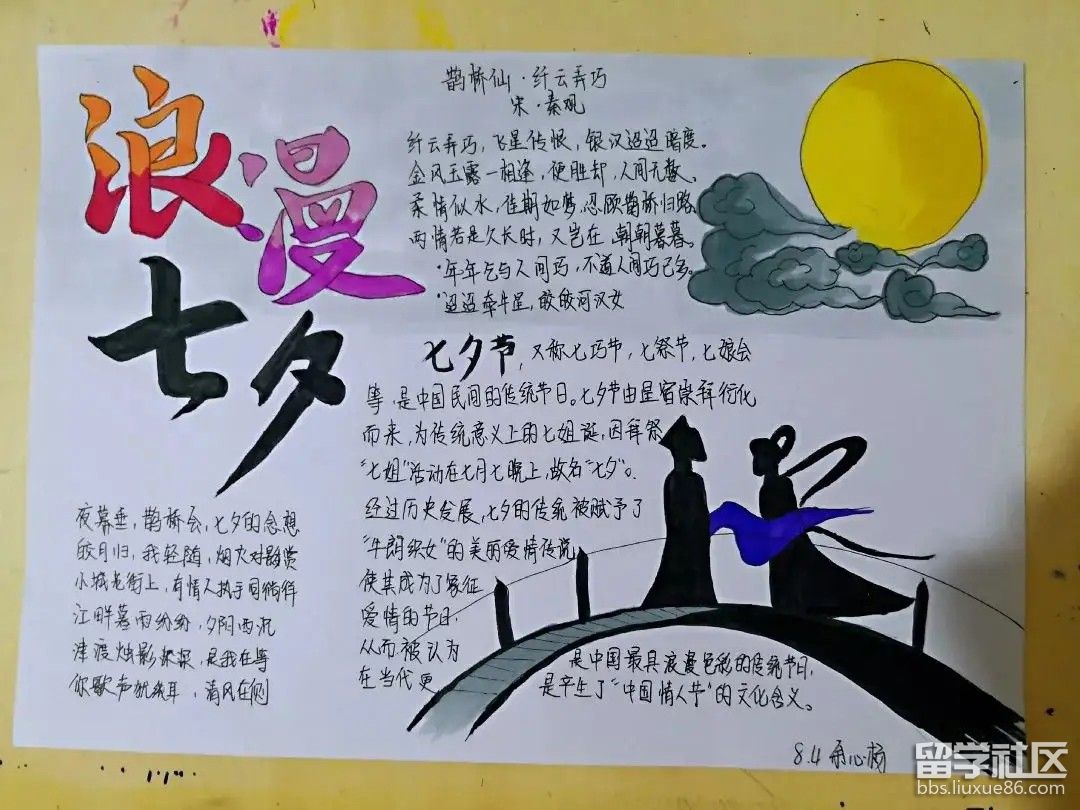 浪漫
七夕
鹊桥仙·纤云弄巧
宋·秦观
纤云弄巧，飞星传恨，银汉迢迢暗度。
金风玉露一相逢，便胜却，人间无数。
柔情似水，佳期如梦，忍顾鹊桥归路。
两情若是久长时，又岂在，朝朝暮暮。
·年年乞与人间巧，不道人间巧已多。
·迢迢牵牛星，皎皎河汉女
七夕节，又称七巧节，七祭节，七娘会
等，是中国民间的传统节日。七夕节由星宿崇拜衍化
而来，为传统意义上的七姐诞，因拜祭
“七姐”活动在七月七晚上，故名“七夕”。
经过历史发展，七夕的传统被赋予了
“牛朗织女”的美丽爱情传说
使其成为了象征
爱情的节日，
从而被认为
在当代更
是中国最具浪漫色彩的传统节日，
是产生了“中国情人节”的文化含义。
夜幕垂，鹊桥会，七夕的念想
皎月归，我轻随，烟火对影赏
小城老街上，有情人执手同徜徉
江畔暮雨纷纷，夕阳西沉
津渡烛影，是我在等
你歌声犹在耳，清风在侧
8.4
留学社区
bbs.liuxue86.com